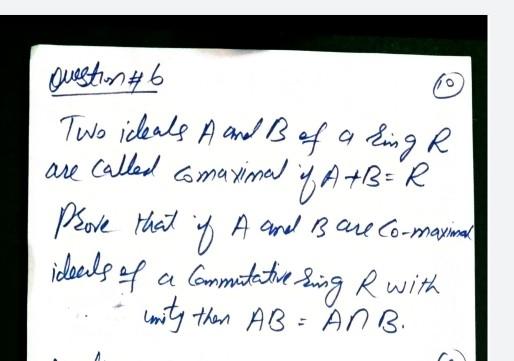 Question # 6
(10)
Two ideals A and B of a Ring R
are called comaximal if A+B = R
Prove that if A and B are Co-maximal
ideals of a Commutative Ring R with
unity then AB = A∩B.